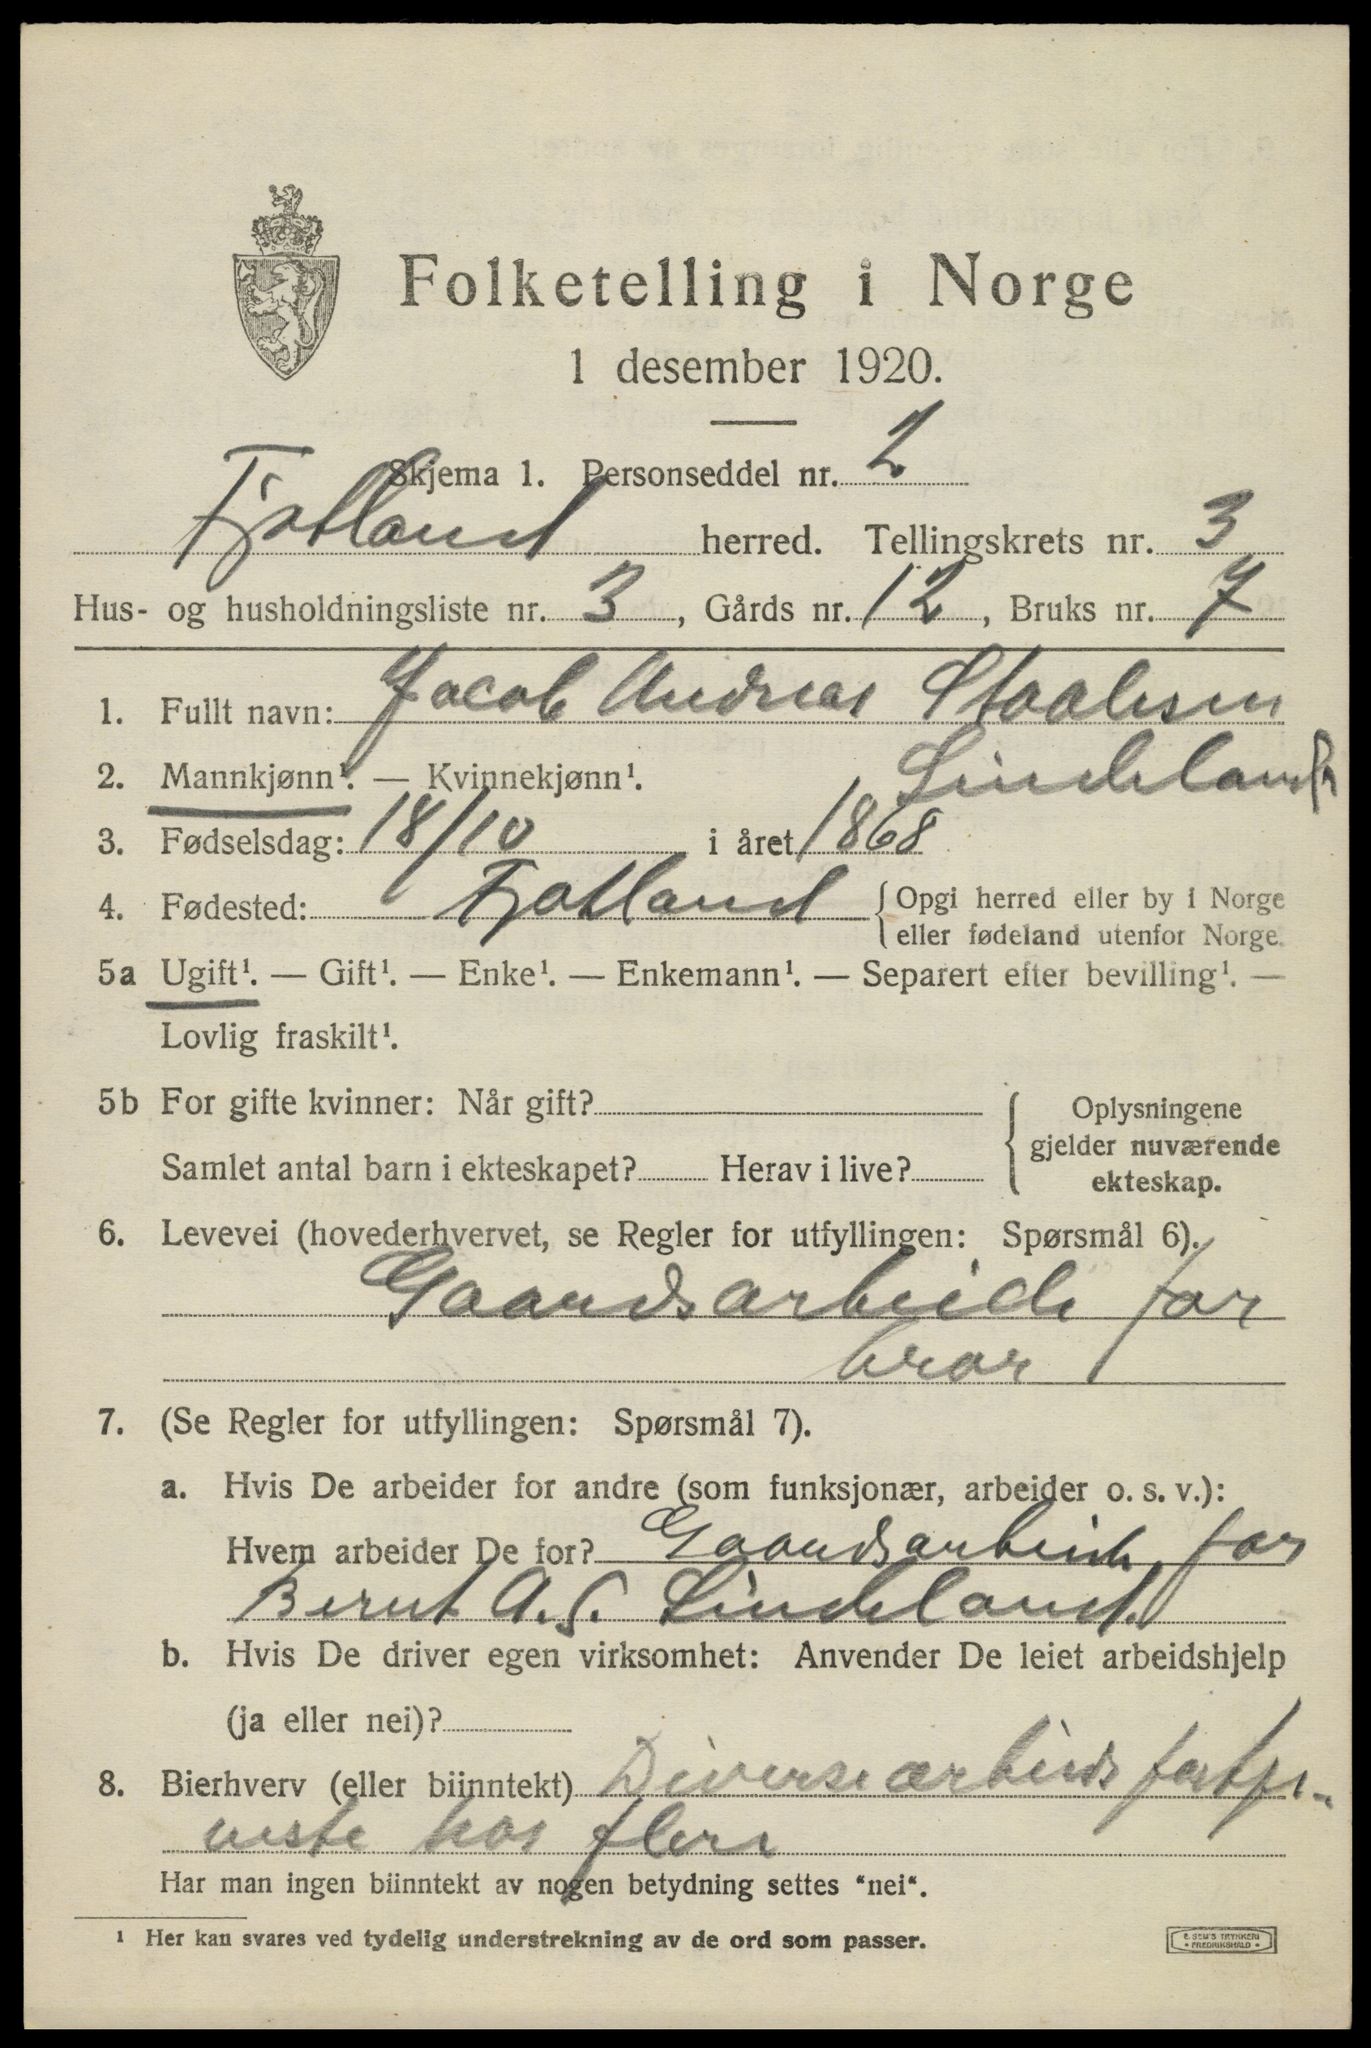 Folketelling i Norge
1 desember 1920.
Skjema 1. Personseddel nr. 2
Fjotland herred. Tellingskrets nr. 3
Hus- og husholdningsliste nr. 3, Gårds nr. 12, Bruks nr. 7
1. Fullt navn: Jacob Andreas Staalesen
Lindeland
2. Mannkjønn¹. — Kvinnekjønn¹.
3. Fødselsdag: 18/10 i året 1868
4. Fødested: Fjotland {Opgi herred eller by i Norge
eller fødeland utenfor Norge.
5a Ugift¹. — Gift¹. — Enke¹. — Enkemann¹. — Separert efter bevilling¹. —
Lovlig fraskilt¹.
5b For gifte kvinner: Når gift?
Samlet antal barn i ekteskapet? Herav i live?
{ Oplysningene
gjelder nuværende
ekteskap.
6. Levevei (hovederhvervet, se Regler for utfyllingen: Spørsmål 6).
Gaardsarbeide for
bror
7. (Se Regler for utfyllingen: Spørsmål 7).
a. Hvis De arbeider for andre (som funksjonær, arbeider o. s. v.):
Hvem arbeider De for? Gaardsarbeide for
Bernt A. S. Lindeland.
b. Hvis De driver egen virksomhet: Anvender De leiet arbeidshjelp
(ja eller nei)?
8. Bierhverv (eller biinntekt) Diverse arbeids fortje-
neste hos flere
Har man ingen biinntekt av nogen betydning settes "nei".
¹ Her kan svares ved tydelig understrekning av de ord som passer.
E. SEM'S TRYKKERI
• FREDRIKSHALD •